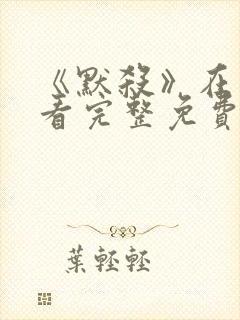 《默殺》在
看完整免費
葉輕輕